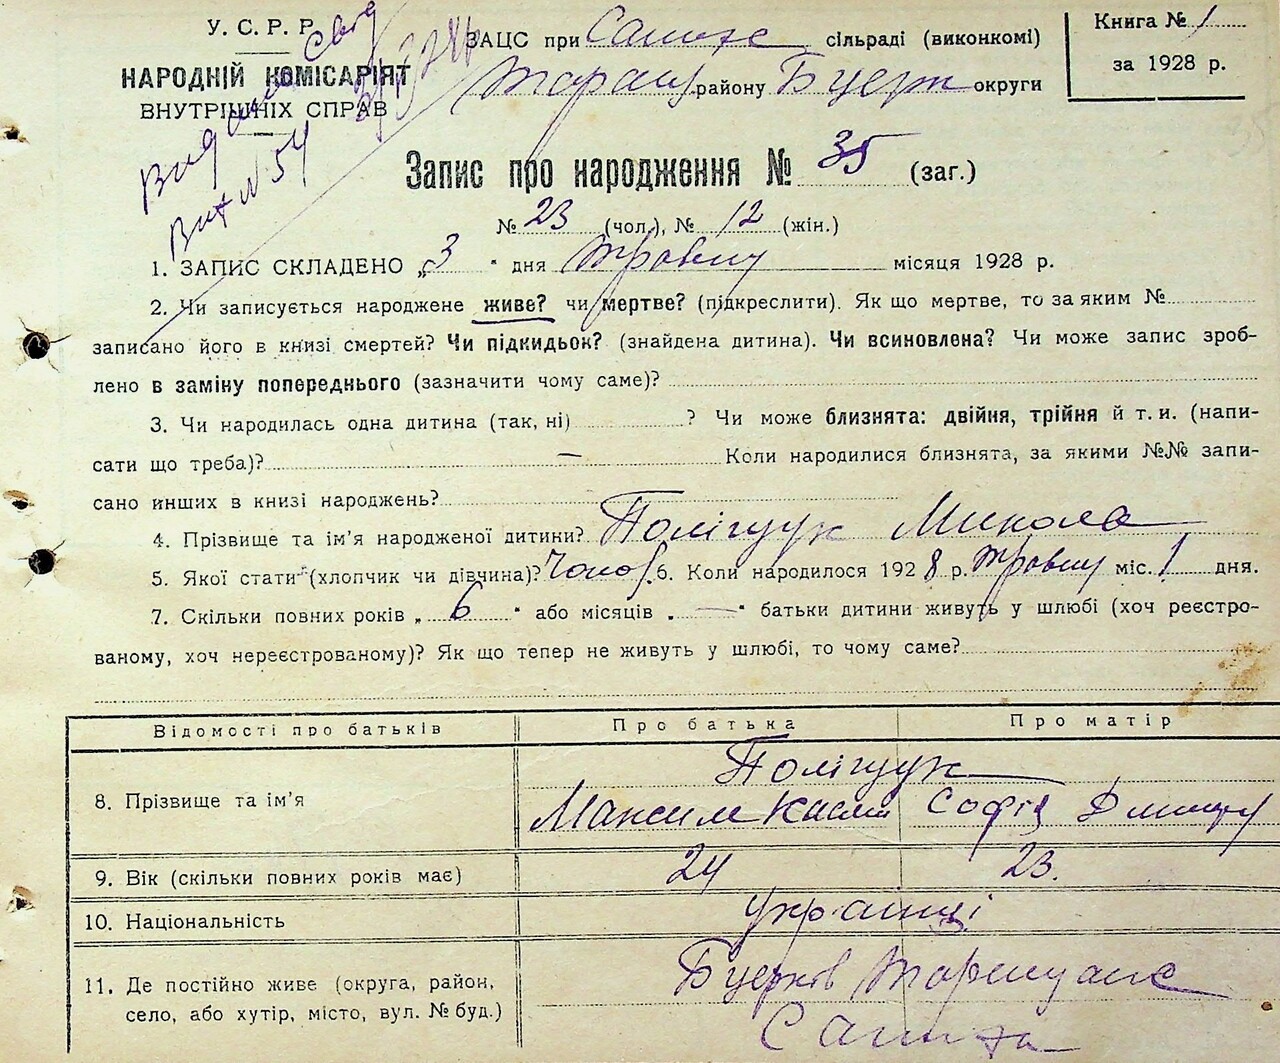 У. С. Р. Р.
НАРОДНІЙ КОМІСАРІЯТ
ВНУТРІШНІХ СПРАВ
Вих № 54
ЗАЦС при сільраді (виконкомі)
району Бцерк округи
Книга № 1
за 1928 р.
Запис про народження № 35 (заг.)
№ 23 (чол.), № 12 (жін.)
1. ЗАПИС СКЛАДЕНО „3" дня травня місяця 1928 р.
2. Чи записується народжене живе? чи мертве? (підкреслити). Як що мертве, то за яким №
записано його в книзі смертей? Чи підкидьок? (знайдена дитина). Чи всиновлена? Чи може запис зроб-
лено в заміну попереднього (зазначити чому саме)?
3. Чи народилась одна дитина (так, ні) ? Чи може близнята: двійня, трійня й т. и. (напи-
сати що треба)? — Коли народилися близнята, за якими №№ запи-
сано инших в книзі народжень?
4. Прізвище та ім'я народженої дитини? Поліщук Микола
5. Якої стати (хлопчик чи дівчина)? 6. Коли народилося 1928 р. травня міс. 1 дня.
7. Скільки повних років „6" або місяців „—" батьки дитини живуть у шлюбі (хоч реєстро-
ваному, хоч нереєстрованому)? Як що тепер не живуть у шлюбі, то чому саме?
Відомості про батьків Про батька Про матір
8. Прізвище та ім'я Поліщук
Максим Софія
9. Вік (скільки повних років має) 24 23.
10. Національність українці
11. Де постійно живе (округа, район,
село, або хутір, місто, вул. № буд.)